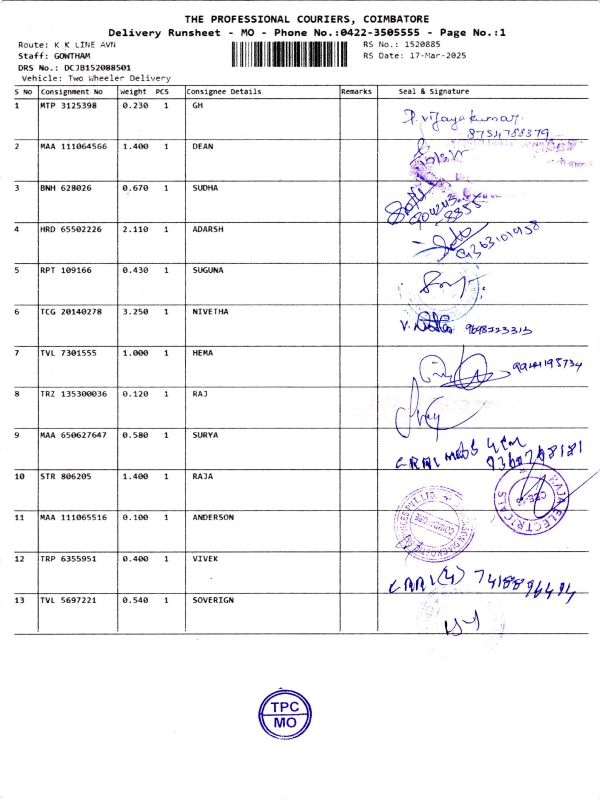 THE PROFESSIONAL COURIERS, COIMBATORE
Delivery Runsheet - MO - Phone No.:0422-3505555 - Page No.:1
Route: K K LINE AVN
RS No.: 1520885
Staff: GOWTHAM
RS Date: 17-Mar-2025
DRS No.: DCJB152088501
Vehicle: Two Wheeler Delivery
S No Consignment No Weight PCS Consignee Details Remarks Seal & Signature
1 MTP 3125398 0.230 1 GH P. Vijayakumar.
8754788379
2 MAA 111064566 1.400 1 DEAN
3 BNH 628026 0.670 1 SUDHA
4 HRD 65502226 2.110 1 ADARSH
9363101958
5 RPT 109166 0.430 1 SUGUNA
6 TCG 20140278 3.250 1 NIVETHA
9698723313
7 TVL 7301555 1.000 1 HEMA
9944195734
8 TRZ 135300036 0.120 1 RAJ
9 MAA 650627647 0.580 1 SURYA
10 STR 806205 1.400 1 RAJA RAJA ELECTRICALS
11 MAA 111065516 0.100 1 ANDERSON
12 TRP 6355951 0.400 1 VIVEK
13 TVL 5697221 0.540 1 SOVERIGN
TPC
MO